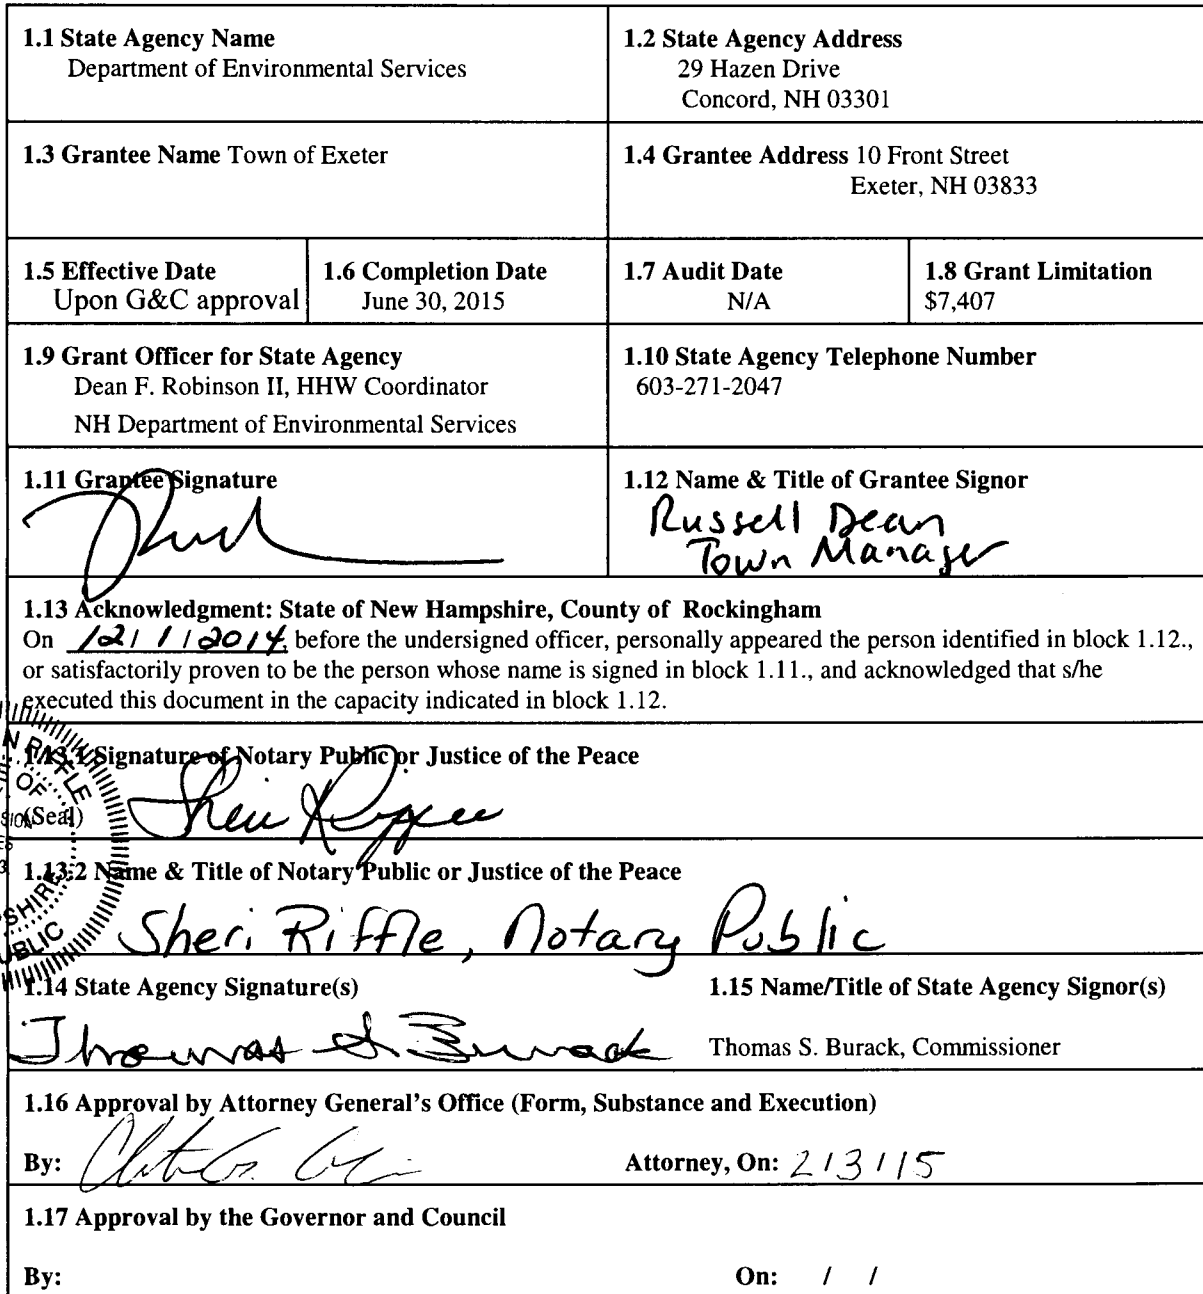 1.1 State Agency Name
Department of Environmental Services
1.2 State Agency Address
29 Hazen Drive
Concord, NH 03301
1.3 Grantee Name Town of Exeter
1.4 Grantee Address 10 Front Street
Exeter, NH 03833
1.5 Effective Date
Upon G&C approval
1.6 Completion Date
June 30, 2015
1.7 Audit Date
N/A
1.8 Grant Limitation
$7,407
1.9 Grant Officer for State Agency
Dean F. Robinson II, HHW Coordinator
NH Department of Environmental Services
1.10 State Agency Telephone Number
603-271-2047
1.11 Grantee Signature
1.12 Name & Title of Grantee Signor
Russell Dean
Town Manager
1.13 Acknowledgment: State of New Hampshire, County of Rockingham
On 12/1/2014, before the undersigned officer, personally appeared the person identified in block 1.12.,
or satisfactorily proven to be the person whose name is signed in block 1.11., and acknowledged that s/he
executed this document in the capacity indicated in block 1.12.
1.13.1 Signature of Notary Public or Justice of the Peace
Sheri Riffle
(Seal)
1.13.2 Name & Title of Notary Public or Justice of the Peace
Sheri Riffle, Notary Public
1.14 State Agency Signature(s)
Thomas S. Burack
1.15 Name/Title of State Agency Signor(s)
Thomas S. Burack, Commissioner
1.16 Approval by Attorney General's Office (Form, Substance and Execution)
By:
Attorney, On: 2/3/15
1.17 Approval by the Governor and Council
By:
On: / /